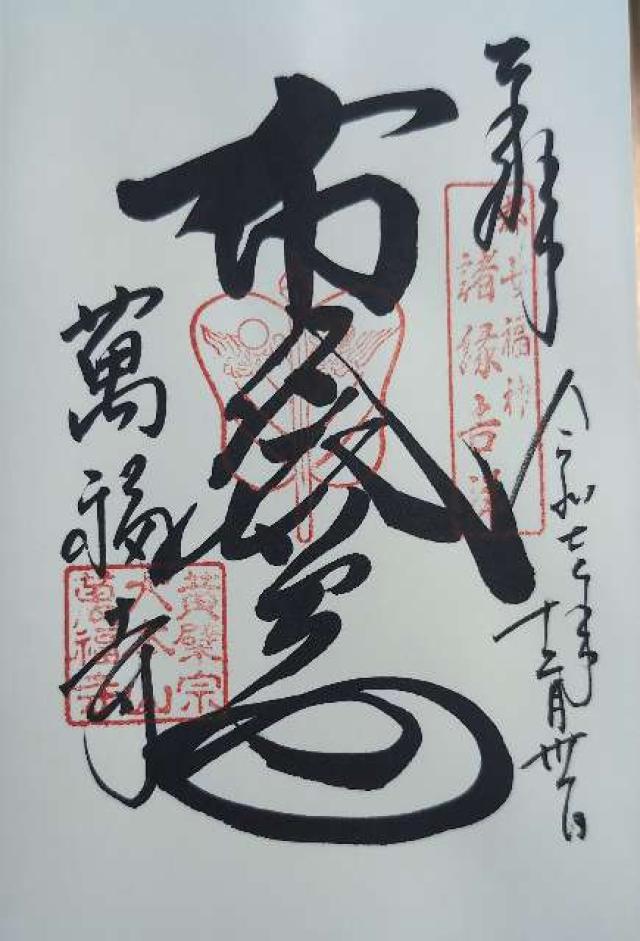 奉拝
令和七年
十二月卅一日
都七福神
諸縁吉祥
布袋尊
萬福寺
黄檗宗
大本山
萬福寺